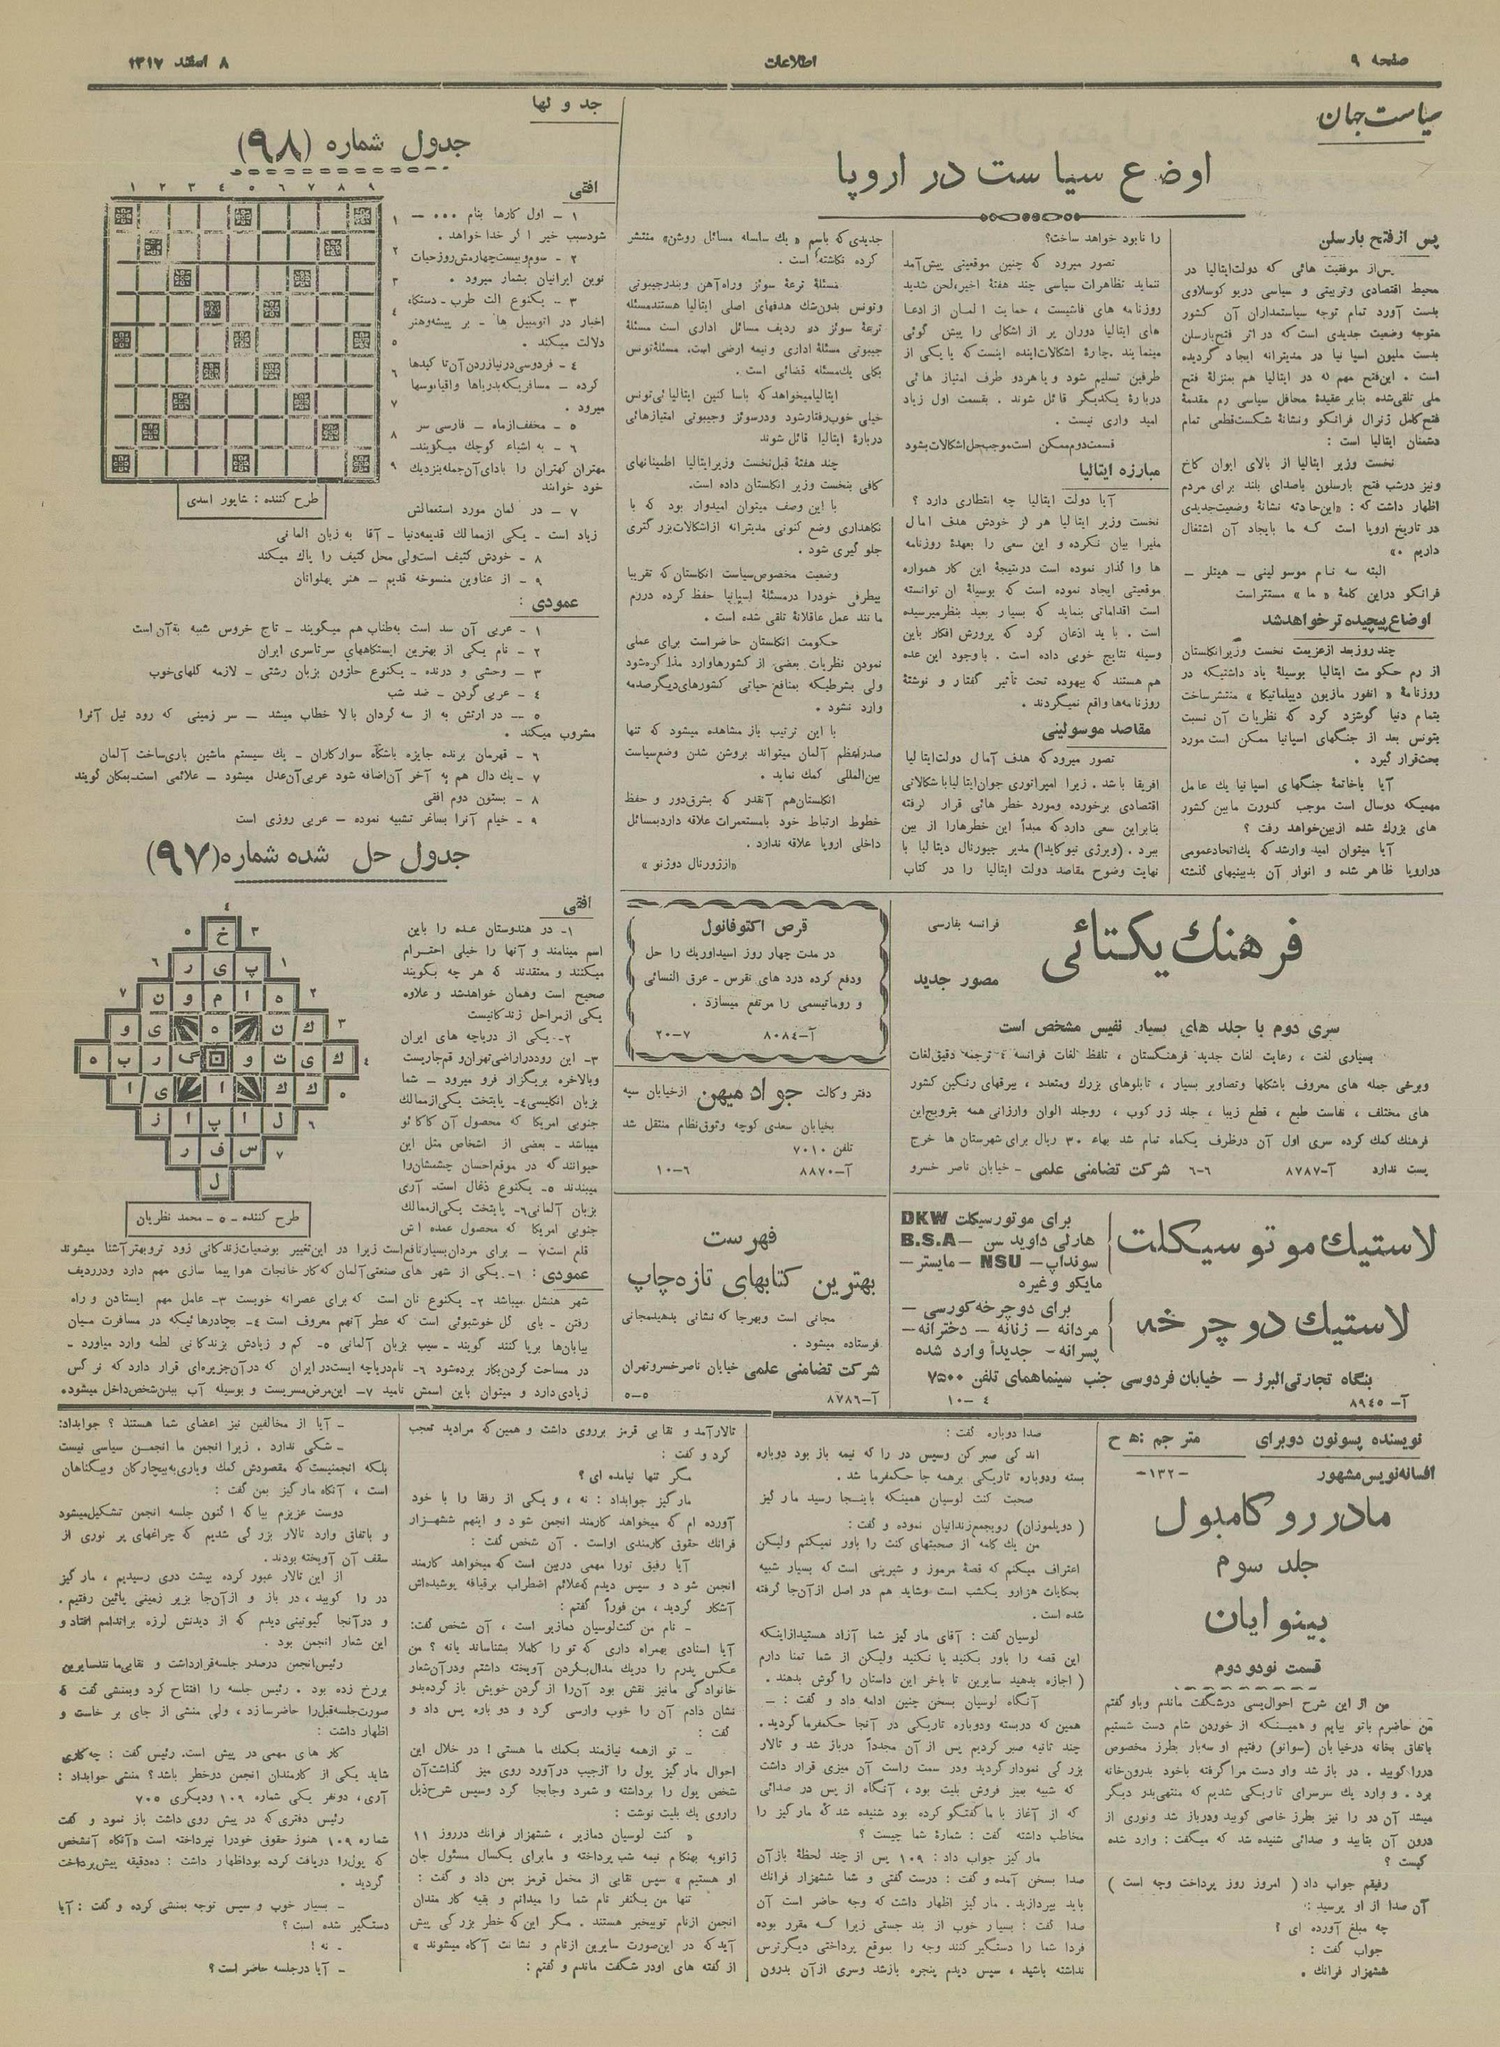 صفحه ۹
اطلاعات
۸ اسفند ۱۳۱۷
سیاست جهان
اوضاع سیاست در اروپا
پس از فتح بارسلن
پس‌از موفقیت هائی که دولت‌ایتالیا در
محیط اقتصادی وتربیتی و سیاسی دریو کوسلاوی
بدست آورد تمام توجه سیاستمداران آن کشور
متوجه وضعیت جدیدی است که در اثر فتح‌بارسلن
ملی تلقی‌شده بنابر عقیدهٔ محافل سیاسی رم مقدمهٔ
فتح‌کامل ژنرال فرانکو ونشانهٔ شکست‌قطعی تمام
دشمنان ایتالیا است :
نخست وزیر ایتالیا از بالای ایوان کاخ
ونیز درشب فتح بارسلون باصدای بلند برای مردم
اظهار داشت که : «این‌حادثه نشانهٔ وضعیت‌جدیدی
در تاریخ اروپا است که ما بایجاد آن اشتغال
داریم .»
البته سه نام موسولینی – هیتلر –
فرانکو دراین کلمهٔ « ما » مستتراست
اوضاع پیچیده ترخواهدشد
چندروزبعد ازعزیمت نخست وزیرانگلستان
از رم حکومت ایتالیا بوسیلهٔ یاد داشتیکه در
روزنامهٔ « انفورمازیون دیپلماتیکا » منتشرساخت
بتمام دنیا گوشزد کرد که نظریات آن نسبت
بتونس بعد از جنگهای اسپانیا ممکن است مورد
بحث‌قرار گیرد .
آیا باخاتمهٔ جنگهای اسپانیا یك عامل
مهمیکه دوسال است موجب کدورت مابین کشور
های بزرك شده ازبین‌خواهد رفت ؟
آیا میتوان امیدوارشدکه یك‌اتحادعمومی
دراروپا ظاهر شده و انوار آن بدبینیهای گذشته
را نابود خواهد ساخت؟
تصور میرود که چنین موقعیتی پیش‌آمد
ننماید تظاهرات سیاسی چند هفتهٔ اخیر،لحن شدید
روزنامه های فاشیست ، حمایت آلمان از ادعا
های ایتالیا دوران پر از اشکالی را پیش گوئی
مینمایند .چارهٔ اشکالات‌آینده اینست‌که یا یکی از
طرفین تسلیم شود و یاهردو طرف امتیاز هائی
دربارهٔ یکدیگر قائل شوند . بقسمت اول زیاد
امید واری نیست .
قسمت‌دوم‌ممکن است‌موجب‌حل‌اشکالات‌بشود
مبارزه ایتالیا
آیا دولت ایتالیا چه انتظاری دارد ؟
نخست وزیر ایتالیا هر گز خودش هدف آمال
ملیرا بیان نکرده و این سعی را بعهدهٔ روزنامه
ها واگذار نموده است درنتیجهٔ این کار همواره
موقعیتی ایجاد نموده است که بوسیلهٔ آن توانسته
است اقداماتی بنماید که بسیار بعید بنظرمیرسیده
است . باید اذعان کرد که پرورش افکار باین
وسیله نتایج خوبی داده است . باوجود این عده
هم هستند که بیهوده تحت تأثیر گفتار و نوشتهٔ
روزنامه‌ها واقع نمیگردند .
مقاصد موسولینی
تصور میرودکه هدف آمال دولت‌ایتالیا
افریقا باشد . زیرا امپراتوری جوان‌ایتالیاباشکالاتی
اقتصادی برخورده ومورد خطرهائی قرار گرفته
بنابراین سعی داردکه مبدأ این خطرهارا از بین
ببرد .
نهایت وضوح مقاصد دولت ایتالیا را در کتاب
جدیدی که باسم « یك سلسله مسائل روشن» منتشر
کرده نگاشته است .
مسئلهٔ ترعهٔ سوئز وراه‌آهن وبندرجیبوتی
وتونس بدون‌شك هدفهای اصلی ایتالیا هستندمسئله
ترعهٔ سوئز در ردیف مسائل اداری است مسئلهٔ
جیبوتی مسئلهٔ اداری ونیمه ارضی است. مسئلهٔ‌تونس
بکلی یك‌مسئله قضائی است .
ایتالیامیخواهدکه باساکنین ایتالیائی‌تونس
خیلی خوب‌رفتارشود ودرسوئز وجیبوتی امتیازهائی
دربارهٔ ایتالیا قائل شوند
چند هفتهٔ قبل‌نخست وزیرایتالیا اطمینانهای
کافی بنخست وزیر انگلستان داده است.
با این وصف میتوان امیدوار بود که با
نگاهداری وضع کنونی مدیترانه ازاشکالات‌بزرگتری
جلوگیری شود .
وضعیت مخصوص‌سیاست انگلستان‌که تقریبا
بیطرفی خودرا درمسئلهٔ اسپانیا حفظ کرده دررم
مانند عمل عاقلانهٔ تلقی شده است .
حکومت انگلستان حاضراست برای عملی
نمودن نظریات بعضی از کشورهاوارد مذاکره‌شود
ولی بشرطیکه بمنافع حیاتی کشورهای‌دیگرصدمه
وارد نشود .
با این ترتیب باز مشاهده میشود که تنها
صدراعظم آلمان میتواند بروشن شدن وضع‌سیاست
بین‌المللی کمك نماید .
انگلستان‌هم آنقدر که بشرق‌دور و حفظ
خطوط ارتباط خود بامستعمرات علاقه داردبمسائل
داخلی اروپا علاقه ندارد .
«ازژورنال دوژنو »
جدولها
جدول شماره (۹۸)
۱ ۲ ۳ ۴ ۵ ۶ ۷ ۸ ۹
۱
۲
۳
۴
۵
۶
۷
۸
۹
طرح کننده : شاپور اسدی
افقی
۱ – اول کارها بنام ... –
شودسبب خیر اگر خدا خواهد .
۲ – سوم‌وبیست‌چهارمش‌روزحیات
نوین ایرانیان بشمار میرود .
۳ – یکنوع آلت طرب – دستگاه
اخبار در اتومبیل ها – بر پیشه‌وهنر
دلالت میکند .
۴ – فردوسی‌درنیازردن‌آن‌تاکیدها
کرده – مسافریکه‌بدریاها واقیانوسها
میرود .
۵ – مخفف‌ازماه – فارسی سر
۶ – به اشیاء کوچك میگویند–
مهتران کهتران را بادای‌آن‌جمله‌بنزدیك
خود خوانند
۷ – در آلمان مورد استعمالش
زیاد است – یکی ازممالك قدیمه‌دنیا – آقا به زبان آلمانی
۸ – خودش کثیف است‌ولی محل کثیف را پاك میکند
۹ – از عناوین منسوخه قدیم – هنر پهلوانان
عمودی :
۱ – عربی آن سد است به‌طناب هم میگویند – تاج خروس شبیه به‌آن‌است
۲ – نام یکی از بهترین ایستگاههای سرتاسری ایران
۳ – وحشی و درنده – یکنوع حلزون بزبان رشتی – لازمه گلهای‌خوب
۴ – عربی گردن – ضد شب
۵ – در ارتش به از سه گردان بالا خطاب میشد – سر زمینی که رود نیل آنرا
مشروب میکند .
۶ – قهرمان برنده جایزه باشگاه سوارکاران – یك سیستم ماشین باری‌ساخت آلمان
۷ – یك دال هم به آخر آن‌اضافه شود عربی‌آن‌عدل میشود – علائمی است–بمکان‌گویند
۸ – بستون دوم افقی
۹ – خیام آنرا بساغر تشبیه نموده – عربی روزی است
جدول حل شده شماره(۹۷)
۴
۵ خ ۳
۶ ر ی پ ۱
۷ ن و م ا ه ۲
و ی ه ن ك ۳
ه ب ر گ و ت ی ك ۴
ا ی ا ك ك ۵
ز ا پ ا ل ۶
ر ف س ۷
ل
طرح کننده – ۵ – محمد نظریان
افقی
۱– در هندوستان عده را باین
اسم مینامند و آنها را خیلی احترام
میکنند و معتقدند که هر چه بگویند
صحیح است وهمان خواهدشد و علاوه
یکی ازمراحل زندگانیست
۲– یکی از دریاچه های ایران
۳– این روددراراضی‌تهران‌و قم‌جاریست
وبالاخره بریگزار فرو میرود – شما
بزبان انگلیسی۴– پایتخت یکی‌ازممالك
جنوبی امریکا که محصول آن کاکائو
میباشد – بعضی از اشخاص مثل این
حیوانندکه در موقع‌احسان چشمشان‌را
میبندند ۵– یکنوع ذغال است– آری
بزبان آلمانی۶– پایتخت یکی‌ازممالك
جنوبی امریکا که محصول عمده اش
قلم است۷ – برای مردان‌بسیارنافع‌است زیرا در این‌تغییر بوضعیات‌زندگانی زود تروبهترآشنا میشوند
عمودی : ۱–. یکی از شهر های صنعتی‌آلمان که‌کارخانجات هواپیما سازی مهم دارد ودرردیف
شهر هنشل میباشد ۲– یکنوع نان است که برای عصرانه خوبست ۳– عامل مهم ایستادن و راه
رفتن – بای گل خوشبوئی است که عطر آنهم معروف است ۴– بچادرهائیکه در مسافرت میان
بیابان‌ها برپاکنند گویند – سیب بزبان آلمانی ۵– کم و زیادش بزندگانی لطمه وارد میاورد –
در مساحت کردن‌بکار برده‌شود ۶– نام‌دریاچه ایست‌در ایران که درآن‌جزیره‌ای قرار دارد که نرگس
زیادی‌دارد و میتوان باین اسمش نامید ۷– این‌مرض‌مسریست و بوسیله آب ببدن‌شخص‌داخل میشود.
قرص اکتوفانول
در مدت چهار روز اسیداوریك را حل
ودفع کرده درد های نقرس – عرق النسائی
و روماتیسمی را مرتفع میسازد .
آ–۸۰۸۴ ۷–۲۰
دفتر وکالت جواد میهن ازخیابان سپه
بخیابان سعدی کوچه وثوق‌نظام منتقل شد
تلفن ۷۰۱۰
آ–۸۸۷۰ ۶–۱۰
فهرست
بهترین کتابهای تازه‌چاپ
مجانی است وبهرجا که نشانی بدهیدمجانی
فرستاده میشود .
شرکت تضامنی علمی خیابان ناصرخسروتهران
آ–۸۷۸۶ ۵–۵
فرانسه بفارسی
فرهنك یکتائی
مصور جدید
سری دوم با جلد های بسیار نفیس مشخص است
بسیاری لغت ، رعایت لغات جدید فرهنگستان ، تلفظ لغات فرانسه ۴ ترجمه دقیق‌لغات
وبرخی جمله های معروف باشکلها وتصاویر بسیار ، تابلوهای بزرك ومتعدد ، بیرقهای رنگین کشور
های مختلف ، نفاست طبع ، قطع زیبا ، جلد زرکوب ، روجلد الوان وارزانی همه بترویج‌این
فرهنك کمك کرده سری اول آن درظرف یکماه تمام شد بهاء ۳۰ ریال برای شهرستان ها خرج
پست ندارد آ–۸۷۸۷ ۶–۶ شرکت تضامنی علمی – خیابان ناصر خسرو
لاستیك موتوسیکلت
برای موتورسیکلت DKW
هارلی داویدسن –B.S.A
سونداپ– NSU – مایستر–
مایکو وغیره
لاستیك دوچرخه
برای دوچرخه‌کورسی –
مردانه – زنانه – دخترانه–
پسرانه– جدیداً وارد شده
بنگاه تجارتی‌البرز – خیابان فردوسی جنب سینماهمای تلفن ۷۵۰۰
آ– ۸۹۴۵ ۴–۱۰
نویسنده پسونون دوبرای مترجم :ه ح
افسانه‌نویس‌مشهور –۱۳۲–
مادر روکامبول
جلد سوم
بینوایان
قسمت نودو دوم
من از این شرح احوال‌بسی درشگفت ماندم وباو گفتم
من حاضرم باتو بیایم و همینکه از خوردن شام دست شستیم
باتفاق بخانه درخیابان (سوانو) رفتیم او سه‌بار بطرز مخصوص
دررا کوبید . در باز شد واو دست مراگرفته باخود بدرون‌خانه
برد . و وارد یك سرسرای تاریکی شدیم که منتهی‌بدر دیگر
میشد آن در را نیز بطرز خاصی کوبید ودرباز شد ونوری از
درون آن بتابید و صدائی شنیده شد که میگفت : وارد شده
کیست ؟
رفیقم جواب داد ( امروز روز پرداخت وجه است )
آن صدا از او پرسید :
چه مبلغ آورده ای ؟
جواب گفت :
ششهزار فرانك .
صدا دوباره گفت :
اندکی صبرکن وسپس در را که نیمه باز بود دوباره
بسته ودوباره تاریکی برهمه جا حکمفرما شد .
صحبت کنت لوسیان همینکه باینجا رسید مارگیز
( دوپلموزان) روبجمع‌زندانیان نموده و گفت :
من یك کلمه از صحبتهای کنت را باور نمیکنم ولیکن
اعتراف میکنم که قصهٔ مرموز و شیرینی است که بسیار شبیه
بحکایات هزارو یکشب است وشاید هم در اصل ازآن‌جا گرفته
شده است .
لوسیان گفت : آقای مارگیز شما آزاد هستیدازاینکه
این قصه را باور بکنید یا نکنید ولیکن از شما تمنا دارم
( اجازه بدهید سایرین تا باخر این داستان را گوش بدهند .
آنگاه لوسیان بسخن چنین ادامه داد و گفت : –
همین که دربسته ودوباره تاریکی در آنجا حکمفرما گردید.
چند ثانیه صبر کردیم پس از آن مجدداً درباز شد و تالار
بزرگی نمودار گردید ودر سمت راست آن میزی قرار داشت
که شبیه بمیز فروش بلیت بود ، آنگاه از پس در صدائی
که از آغاز با ما گفتگو کرده بود شنیده شدکه مارگیز را
مخاطب داشته گفت : شمارهٔ شما چیست ؟
مارکیز جواب داد : ۱۰۹ پس از چند لحظهٔ بازآن
صدا بسخن آمده و گفت : درست گفتی و شما ششهزار فرانك
باید بپردازید . مارگیز اظهار داشت که وجه حاضر است آن
صدا گفت : بسیار خوب از بند جستی زیرا که مقرر بوده
فردا شما را دستگیر کنند وجه را بموقع پرداختی دیگرترس
نداشته باشید ، سپس دیدم پنجره بازشد وسری ازآن بدرون
تالارآمد و نقابی قرمز برروی داشت و همین‌که مرادید تعجب
کرد و گفت :
مگر تنها نیامده ای ؟
مارگیز جوابداد : نه ، و یکی از رفقا را با خود
آورده ام که میخواهد کارمند انجمن شود و اینهم ششهزار
فرانك حقوق کارمندی اواست . آن شخص گفت :
آیا رفیق تورا مهمی دربین است‌که میخواهد کارمند
انجمن شود و سپس دیدم که‌علائم اضطراب برقیافه پوشیده‌اش
آشکار گردید ، من فوراً گفتم :
– نام من کنت‌لوسیان دمازیر است ، آن شخص گفت:
آیا اسنادی بهمراه داری که تو را کاملا بشناساند یانه ؟ من
عکس پدرم را دریك مدال‌بگردن آویخته داشتم ودرآن‌شعار
خانوادگی مانیز نقش بود آن‌را از گردن خویش باز کرده‌بدو
نشان دادم آن را خوب وارسی کرد و دوباره پس داد و
گفت :
– تو ازهمه نیازمند بکمك ما هستی ! در خلال این
احوال مارگیز پول را ازجیب درآورد روی میز گذاشت‌آن
شخص پول را برداشته و شمرد وجابجا کرد وسپس شرح‌ذیل
راروی یك بلیت نوشت :
« کنت لوسیان دمازیر ، ششهزار فرانك درروز ۱۱
ژانویه بهنگام نیمه شب‌پرداخته و مابرای یکسال مسئول جان
او هستیم » سپس نقابی از مخمل قرمز بمن داد و گفت :
تنها من یکنفر نام شما را میدانم و بقیه کارمندان
انجمن ازنام توبیخبر هستند . مگر این‌که خطر بزرگی پیش
آیدکه در این‌صورت سایرین ازنام و نشانت آگاه میشوند »
از گفته های اودر شگفت ماندم و گفتم :
– آیا از مخالفین نیز اعضای شما هستند ؟ جوابداد:
– شکی ندارد . زیرا انجمن ما انجمن سیاسی نیست
بلکه انجمنیست که مقصودش کمك ویاری‌به‌بیچارگان وبیگناهان
است ، آنگاه مارگیز بمن گفت :
دوست عزیزم بیا که اکنون جلسه انجمن تشکیل‌میشود
و باتفاق وارد تالار بزرگی شدیم که چراغهای پر نوری از
سقف آن آویخته بودند .
از این تالار عبور کرده بپشت دری رسیدیم ، مارگیز
در را کوبید ، در باز و ازآن‌جا بزیر زمینی پائین رفتیم .
و درآنجا گیوتینی دیدم که از دیدنش لرزه براندامم افتاد و
این شعار انجمن بود .
رئیس‌انجمن درصدر جلسه‌قرارداشت و نقابی‌مانندسایرین
بررخ زده بود . رئیس جلسه را افتتاح کرد وبمنشی گفت که
صورت‌جلسه‌قبل‌را حاضرسازد ، ولی منشی از جای برخاست و
اظهار داشت :
کارهای مهمی در پیش است. رئیس گفت : چه‌کاری
شاید یکی از کارمندان انجمن درخطر باشد؟ منشی جوابداد :
آری، دونفر یکی شماره ۱۰۹ ودیگری ۷۰۵
رئیس دفتری‌که در پیش روی داشت باز نمود و گفت
شماره ۱۰۹ هنوز حقوق خودرا نپرداخته است «آنگاه آنشخص
که پول‌را دریافت کرده بوداظهار داشت : ده‌دقیقه پیش‌پرداخت
گردید .
– بسیار خوب و سپس توجه بمنشی کرده و گفت : آیا
دستگیر شده است ؟
– نه !
– آیا درجلسه حاضر است ؟